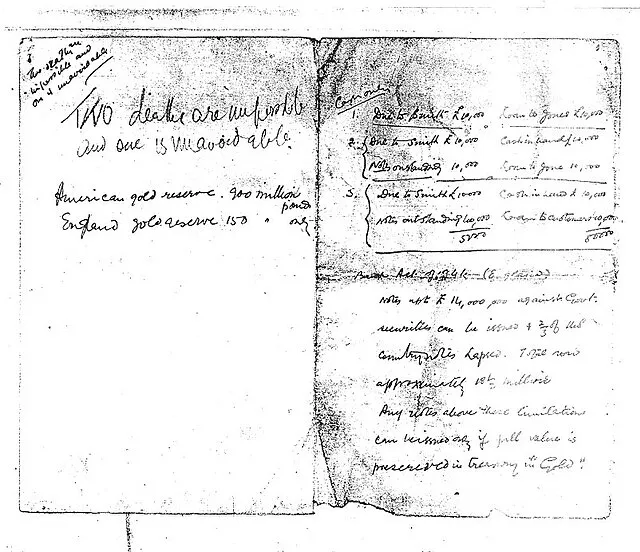 Two deaths are
impossible and
one is unavoidable
TWO deaths are impossible
and one is unavoidable.
American gold reserve. 900 million
pounds
England gold reserve 150 " only
Customers
1. Due to Smith £10,000 Loan to Jones £10,000
2. Due to Smith £10,000 Cash in hand £10,000
Notes outstanding 10,000 Loan to Jones 10,000
3. Due to Smith £10000 Cash in hand £10,000
Notes outstanding 40,000 Loan to customers 40,000
50000
Bank Act of 1844 (England)
Notes upto £14,000,000 against Govt:
securities can be issued + 2/3 of the
country notes lapsed. Total now
approximately millions
Any notes above these limitations
can be issued only if full value is
preserved in treasury in "Gold".